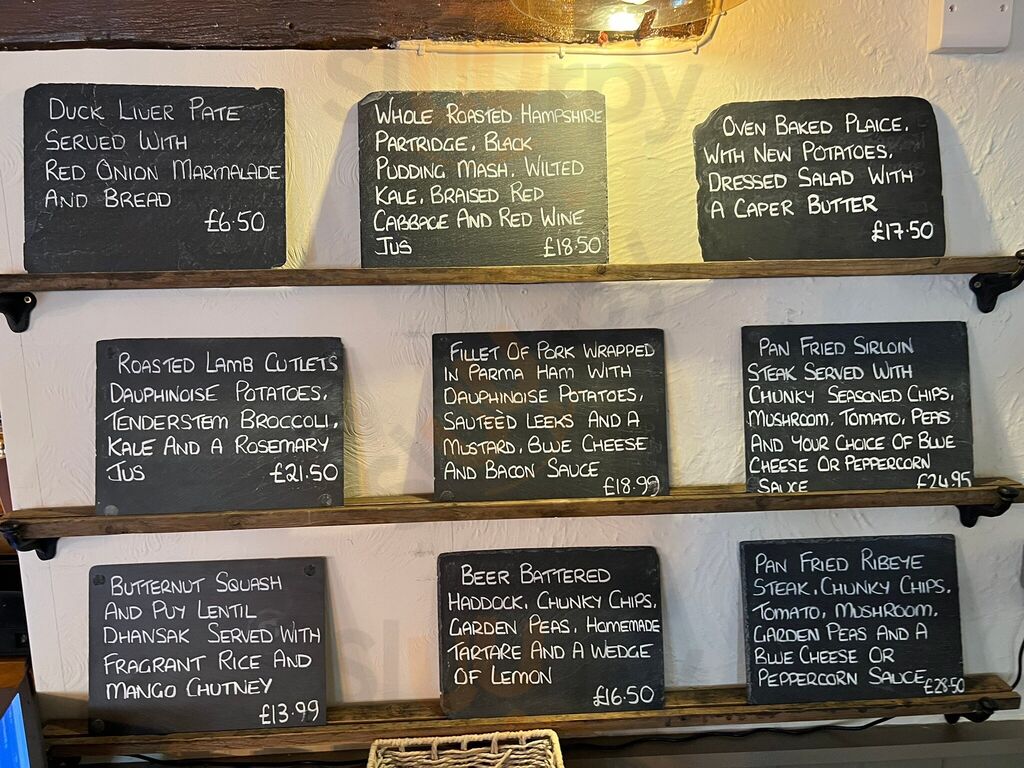 DUCK LIVER PATE
SERVED WITH
RED ONION MARMALADE
AND BREAD
£6.50
WHOLE ROASTED HAMPSHIRE
PARTRIDGE, BLACK
PUDDING MASH, WILTED
KALE, BRAISED RED
CABBAGE AND RED WINE
JUS £18.50
OVEN BAKED PLAICE,
WITH NEW POTATOES,
DRESSED SALAD WITH
A CAPER BUTTER
£17.50
ROASTED LAMB CUTLETS
DAUPHINOISE POTATOES,
TENDERSTEM BROCCOLI,
KALE AND A ROSEMARY
JUS £21.50
FILLET OF PORK WRAPPED
IN PARMA HAM WITH
DAUPHINOISE POTATOES,
SAUTEÈD LEEKS AND A
MUSTARD, BLUE CHEESE
AND BACON SAUCE
£18.99
PAN FRIED SIRLOIN
STEAK SERVED WITH
CHUNKY SEASONED CHIPS,
MUSHROOM, TOMATO, PEAS
AND YOUR CHOICE OF BLUE
CHEESE OR PEPPERCORN
SAUCE £24.95
BUTTERNUT SQUASH
AND PUY LENTIL
DHANSAK SERVED WITH
FRAGRANT RICE AND
MANGO CHUTNEY
£13.99
BEER BATTERED
HADDOCK, CHUNKY CHIPS,
GARDEN PEAS, HOMEMADE
TARTARE AND A WEDGE
OF LEMON
£16.50
PAN FRIED RIBEYE
STEAK, CHUNKY CHIPS,
TOMATO, MUSHROOM,
GARDEN PEAS AND A
BLUE CHEESE OR
PEPPERCORN SAUCE £28.50